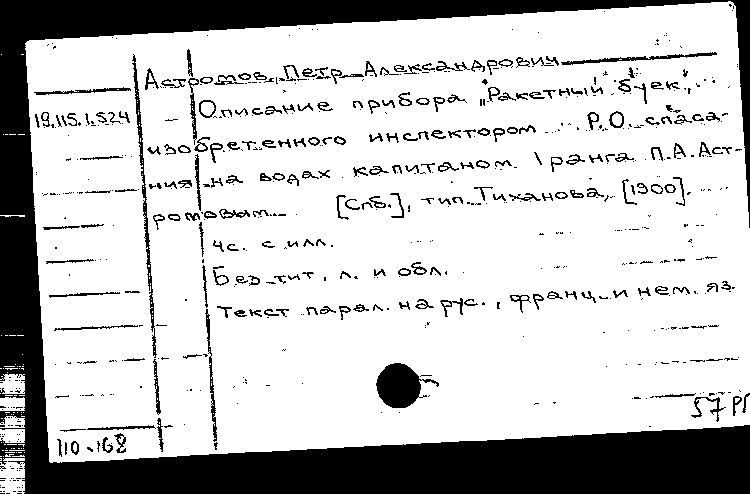 Астромов, Петр Александрович
19.115.1.524
— Описание прибора „Ракетный буек",
изобретенного инспектором Р.О. спаса-
ния на водах капитаном 1 ранга П.А. Аст-
ромовым. [Спб.], тип. Тиханова, [1900].
4с. с илл.
Без тит. л. и обл.
Текст парал. на рус., франц. и нем. яз.
57 РП
110-168